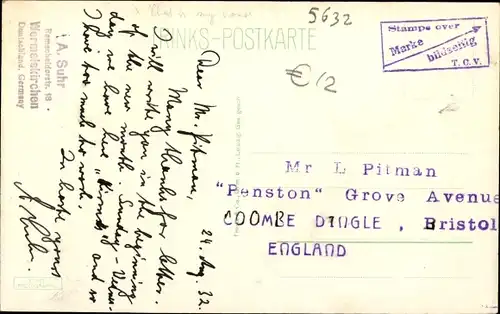 x That is my house
5632
LINKS-POSTKARTE
Stamps over
Marke
bildseitig
T.C.V.
12
i A. Suhr
Remscheiderstr. 18
Wermelskirchen
Deutschland, Germany
24. Aug. 32.
Dear Mr. Pitman,
Many thanks for letter.
I will write you in the beginning
of the new month. Sunday -
day we have here "Kirmes" and so
I have too much to work.
In haste yours
A Suhr.
Mr L Pitman
"Penston" Grove Avenue
COOMBE DINGLE , Bristol
ENGLAND